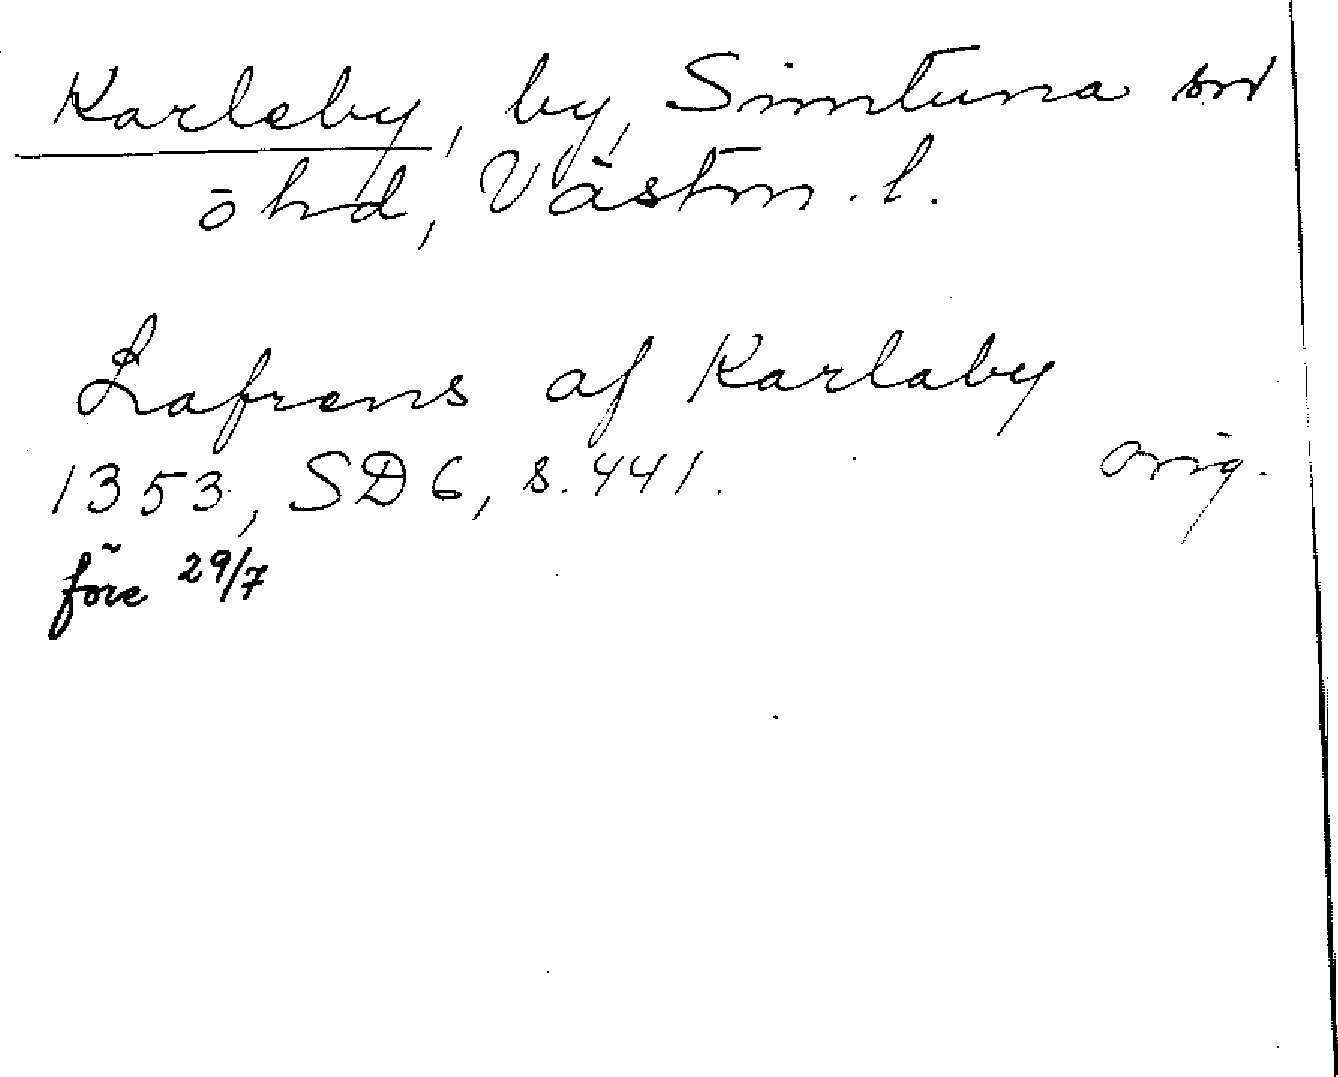 Karleby, by, Simtuna sn
o hd, Västm. l.
Lafrens af Karlaby
1353, SD 6, s. 441. orig.
före 29/7